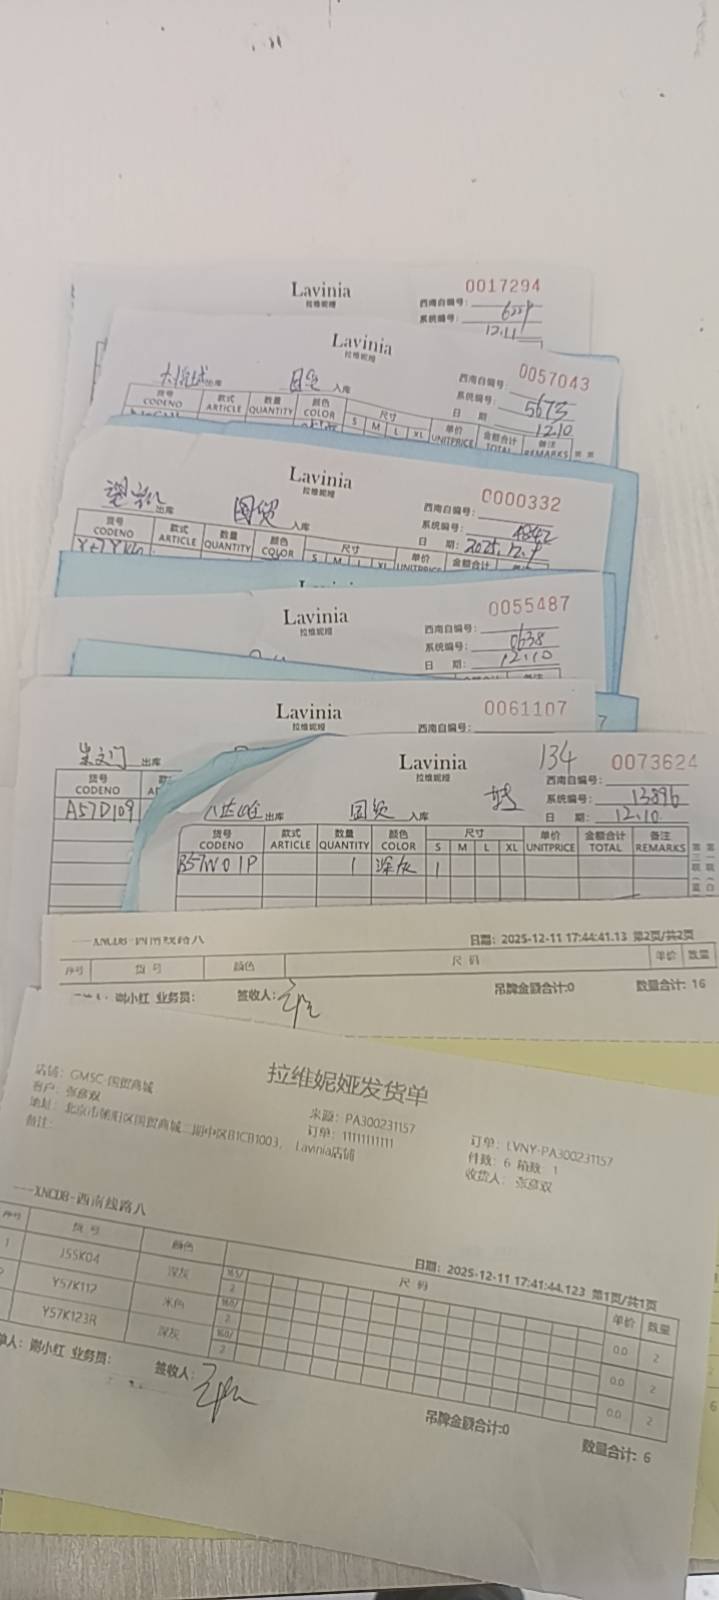 Lavinia
拉维妮娅
0017294
西南自编号:
系统编号:
12.11
Lavinia
拉维妮娅
0057043
西南自编号:
系统编号: 5673
日 期 12.10
出库 国贸 入库
货号 款式 数量 颜色 尺寸 单价 金额合计 备注
CODENO ARTICLE QUANTITY COLOR S M L XL UNITPRICE TOTAL REMARKS
Lavinia
拉维妮娅
0000332
西南自编号:
系统编号: 4842
日 期: 2025.12.9
出库 国贸 入库
货号 款式 数量 颜色 尺寸 单价 金额合计
CODENO ARTICLE QUANTITY COLOR S M L XL UNITPRICE
Lavinia
拉维妮娅
0055487
西南自编号:
系统编号: 0638
日 期: 12.10
Lavinia
0061107
西南自编号:
7
崇文门 出库
货号
CODENO
A57D109
Lavinia
拉维妮娅
134
0073624
西南自编号:
系统编号: 13896
日 期: 12.10
出库 国贸 入库
货号 款式 数量 颜色 尺寸 单价 金额合计 备注
CODENO ARTICLE QUANTITY COLOR S M L XL UNITPRICE TOTAL REMARKS
B57W01P 1 深灰 1
XNCDB-西南线路八
日期: 2025-12-11 17:44:41.13 第2页/共2页
序号 货 号 颜色 尺 码 单价 数量
谢小红 业务员: 签收人: 吊牌金额合计:0 数量合计: 16
拉维妮娅发货单
店铺: GMSC-国贸商城
客户: 张彦双
来源: PA300231157
订单: LVNY-PA300231157
地址: 北京市朝阳区国贸商城二期中区B1CB1003, Lavinia店铺
订单: 11111111111
件数: 6 箱数: 1
备注:
收货人: 张彦双
XNCDB-西南线路八
日期: 2025-12-11 17:41:44.123 第1页/共1页
序号 货 号 颜色 尺 码 单价 数量
1 J55K04 深灰 165/ 2 0.0 2
Y57K112 米色 160/ 2 0.0 2
Y57K123R 深灰 160/ 2 0.0 2
单人: 谢小红 业务员: 签收人: 吊牌金额合计:0 数量合计: 6